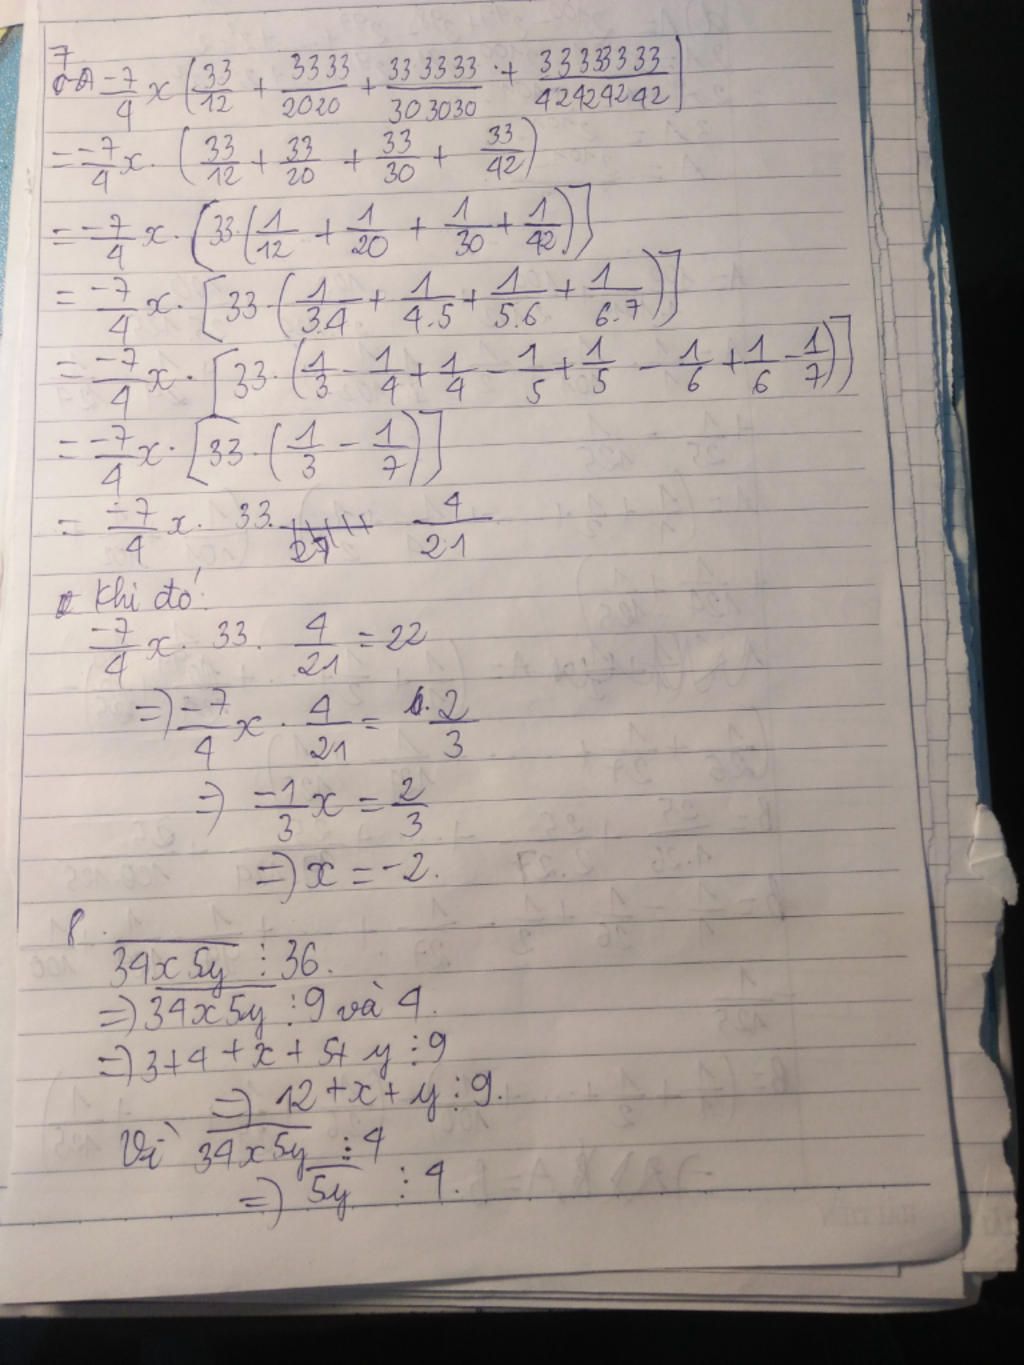 7
-7/4 x (33/12 + 3333/2020 + 333333/303030 + 33333333/42424242)
= -7/4 x . (33/12 + 33/20 + 33/30 + 33/42)
= -7/4 x . [33.(1/12 + 1/20 + 1/30 + 1/42)]
= -7/4 x . [33.(1/3.4 + 1/4.5 + 1/5.6 + 1/6.7)]
= -7/4 x . [33.(1/3 - 1/4 + 1/4 - 1/5 + 1/5 - 1/6 + 1/6 - 1/7)]
= -7/4 x . [33.(1/3 - 1/7)]
= -7/4 x . 33. 4/21
Khi đó:
-7/4 x . 33. 4/21 = 22
=> -7/4 x . 4/21 = 2/3
=> -1/3 x = 2/3
=> x = -2.
8.
34x5y ⋮ 36.
=> 34x5y ⋮ 9 và 4.
=> 3+4+x+5+y ⋮ 9
=> 12+x+y ⋮ 9.
Vì 34x5y ⋮ 4
=> 5y ⋮ 4.